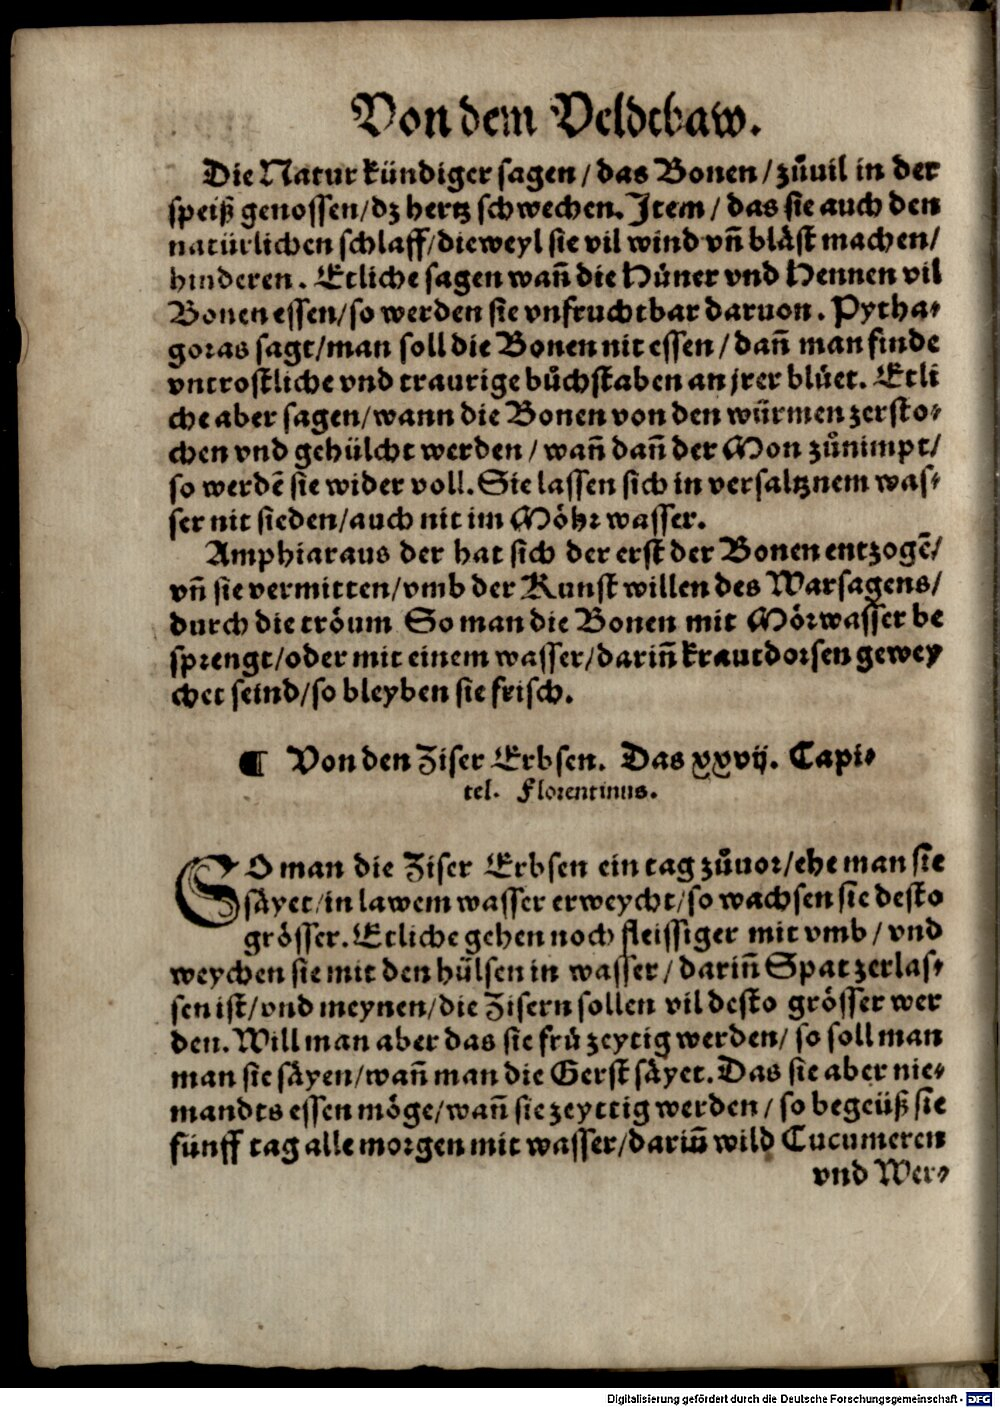 Von dem Veldebaw.
Die Natur kündiger sagen / das Bonen / zůuil in der
speiß genossen / dz hertz schwechen. Item / das sie auch den
natürlichen schlaff / dieweyl sie vil wind vñ bläst machen /
hinderen. Etliche sagen wañ die Hüner vnd Hennen vil
Bonen essen / so werden sie vnfruchtbar daruon. Pytha-
goras sagt / man soll die Bonen nit essen / dañ man finde
vntrostliche vnd traurige bůchstaben an jrer blüet. Etli
che aber sagen / wann die Bonen von den würmen zersto-
chen vnd gehülcht werden / wañ dañ der Mon zůnimpt /
so werdẽ sie wider voll. Sie lassen sich in versaltznem was-
ser nit sieden / auch nit im Möhr wasser.
Amphiaraus der hat sich der erst der Bonen entzogẽ /
vñ sie vermitten / vmb der Kunst willen des Warsagens /
durch die tröum So man die Bonen mit Mörwasser be
sprengt / oder mit einem wasser / dariñ krautdorsen gewey
chet seind / so bleyben sie frisch.
¶ Von den Ziser Erbsen. Das xxvij. Capi-
tel. Florentinus.
SO man die Ziser Erbsen ein tag zůuor / ehe man sie
säyet / in lawem wasser erweycht / so wachsen sie desto
grösser. Etliche gehen noch fleissiger mit vmb / vnd
weychen sie mit den hülsen in wasser / dariñ Spat zerlas-
sen ist / vnd meynen / die Zisern sollen vil desto grösser wer
den. Will man aber das sie frü zeytig werden / so soll man
man sie säyen / wañ man die Gerst säyet. Das sie aber nie-
mandts essen möge / wañ sie zeyttig werden / so begeüß sie
fünff tag alle morgen mit wasser / dariñ wild Cucumeren
vnd Wer-
Digitalisierung gefördert durch die Deutsche Forschungsgemeinschaft - DFG